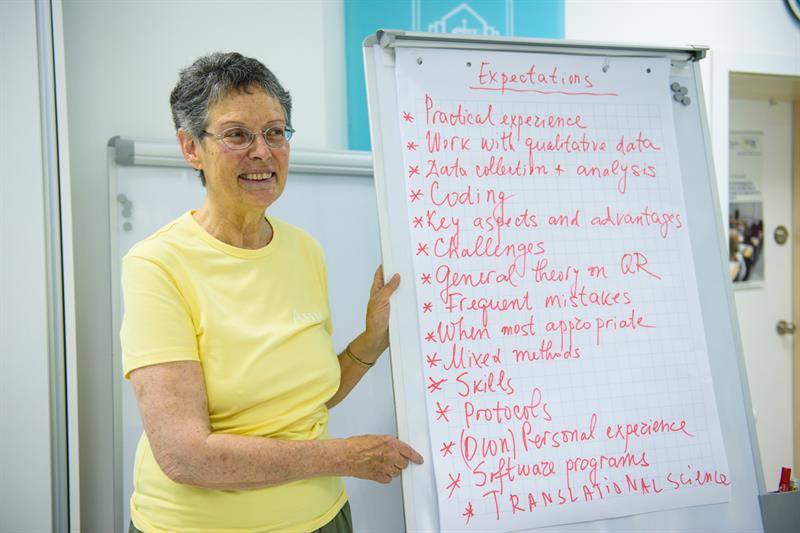 Expectations
* Practical experience
* Work with qualitative data
* Data collection + analysis
* Coding
* Key aspects and advantages
* Challenges
* General theory on QR
* Frequent mistakes
* When most appropriate
* Mixed methods
* Skills
* Protocols
* (Own) Personal experience
* Software programs
* TRANSLATIONAL SCIENCE